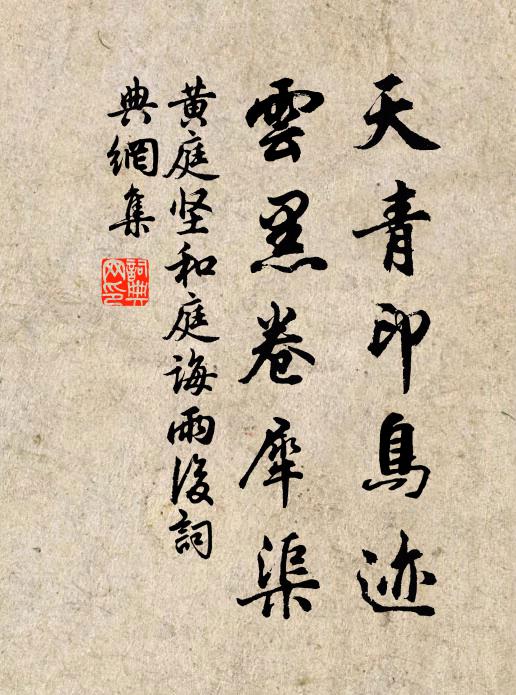 天青印鳥迹
雲黑卷犀渠
黄庭坚和庭诲雨後詞
典網集
詞典網印